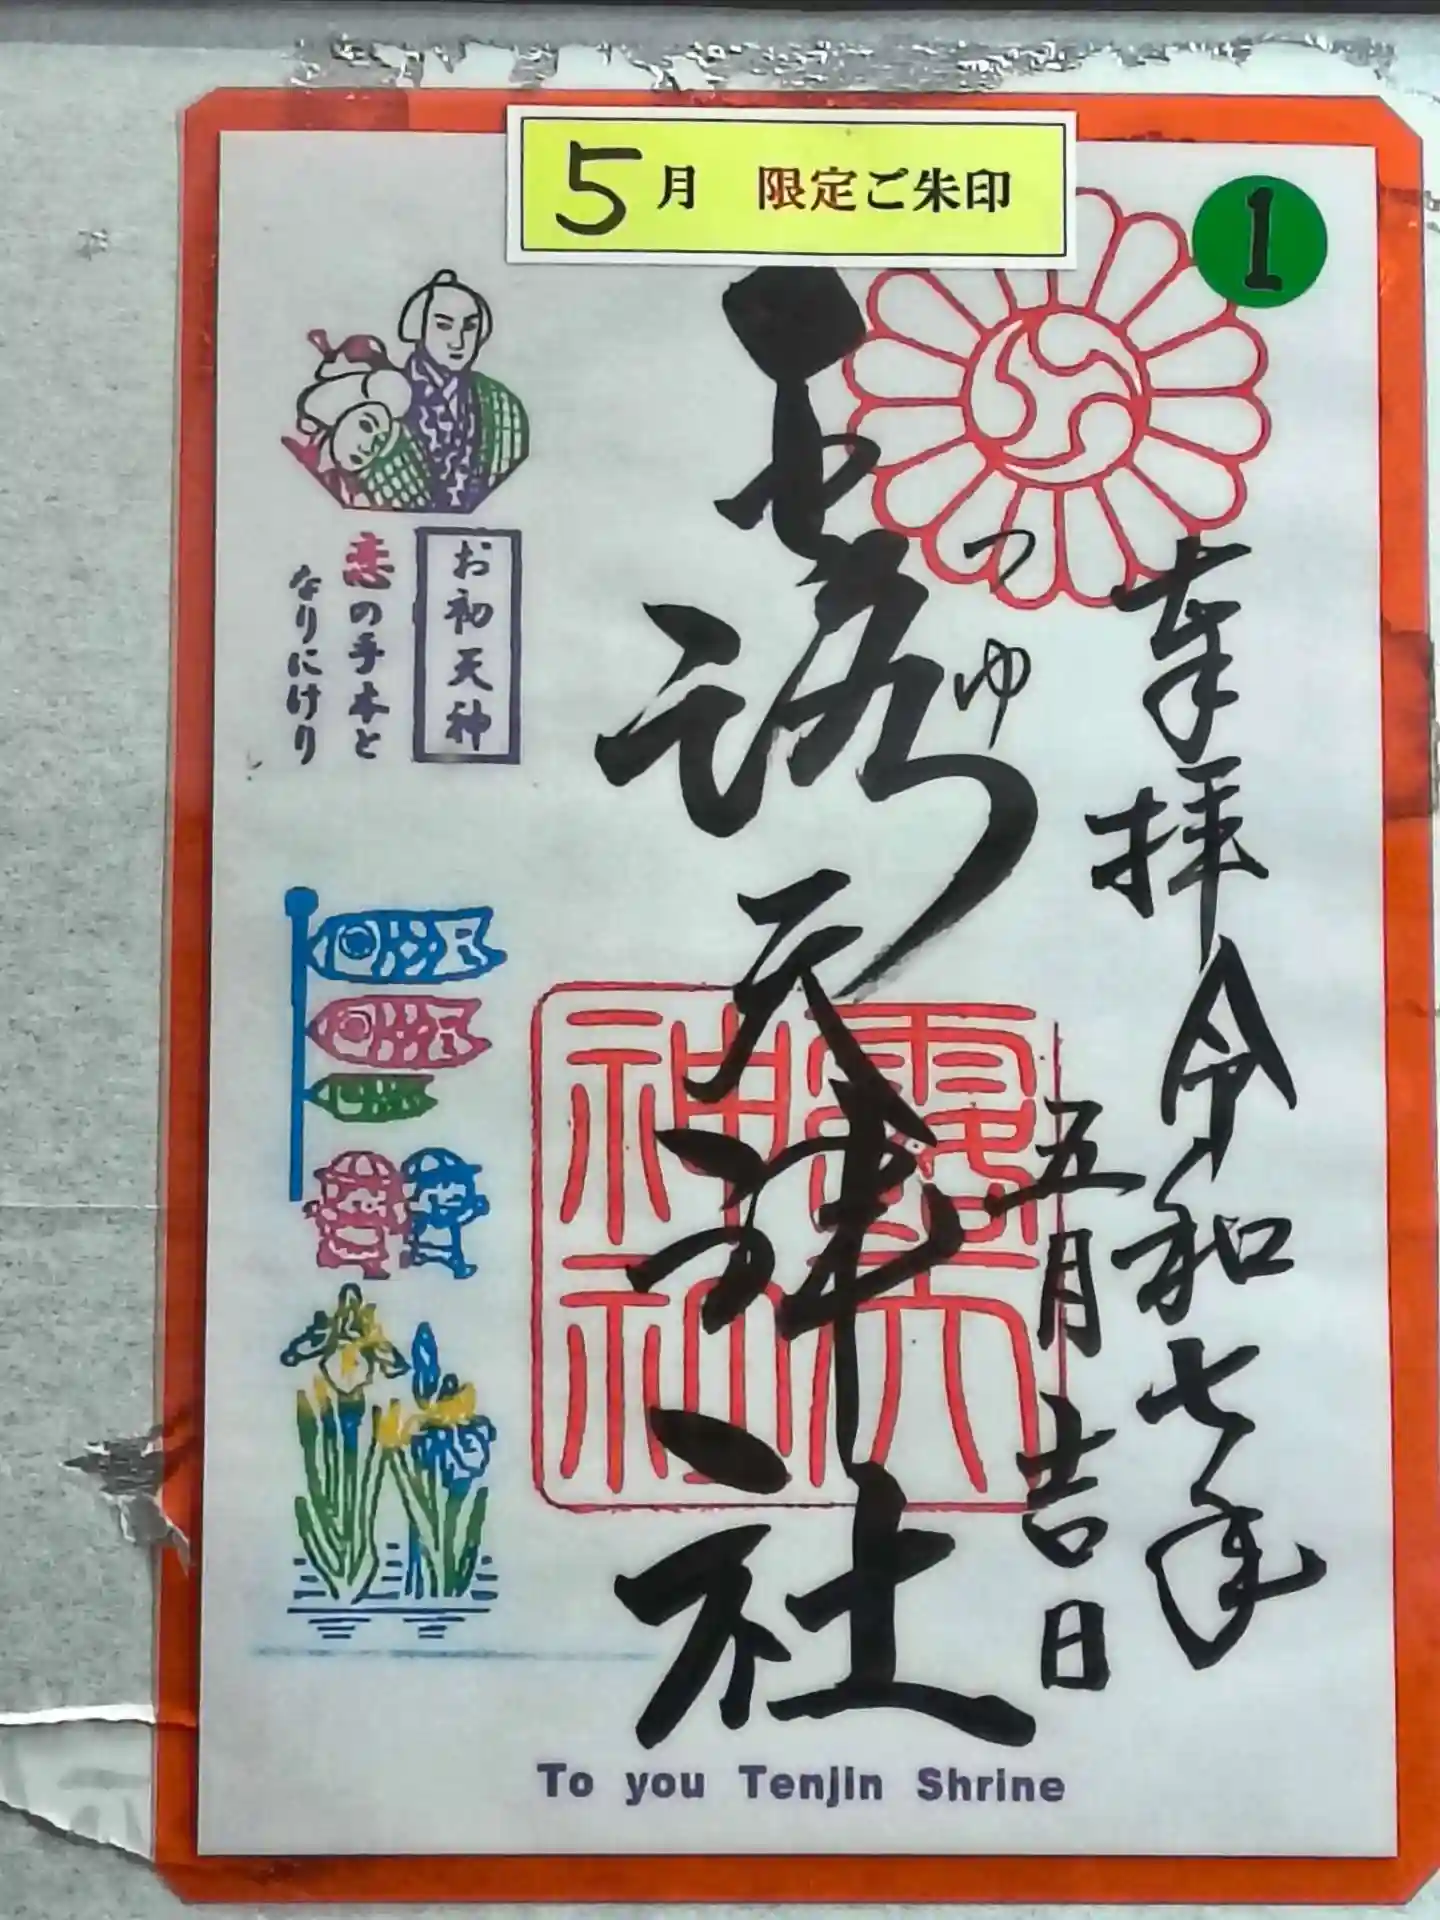 5月 限定ご朱印
1
奉拝 令和七年
五月吉日
つゆ
露天神社
露天
神社
お初天神
恋の手本と
なりにけり
To you Tenjin Shrine